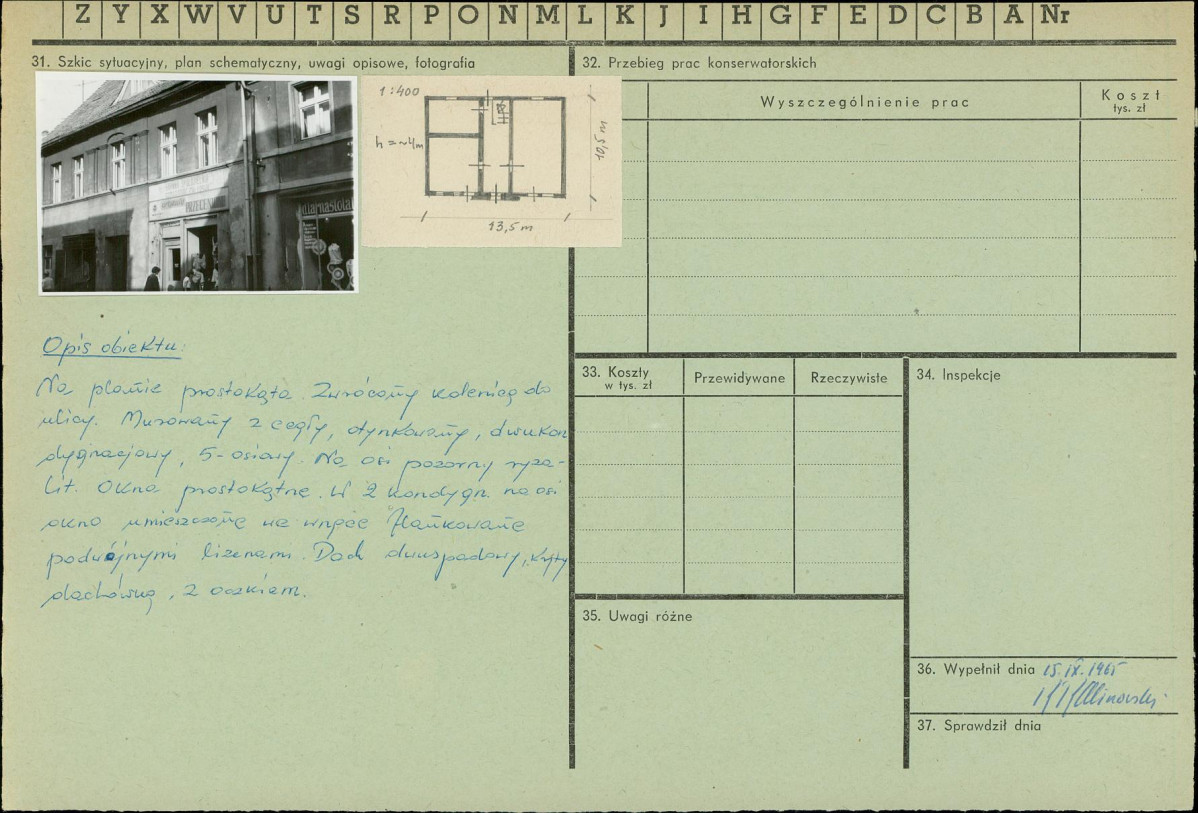 Z Y X W V U T S R P O N M L K J I H G F E D C B A Nr
31. Szkic sytuacyjny, plan schematyczny, uwagi opisowe, fotografia
PRZECEN
dlarnastola
1:400
h = ~4m
10,5 m
13,5 m
Opis obiektu:
Na planie prostokąta. Zwrócony kalenicą do
ulicy. Murowany z cegły, otynkowany, dwukon
dygnacjowy, 5-osiowy. Na osi pozorny ryza-
lit. Okna prostokątne. W 2 kondygn. na osi
okno umieszczone we wnęce flankowane
podwójnymi lizenami. Dach dwuspadowy, kryty
dachówką, z oczkiem.
32. Przebieg prac konserwatorskich
Wyszczególnienie prac
Koszt
tys. zł
33. Koszty
w tys. zł
Przewidywane
Rzeczywiste
34. Inspekcje
35. Uwagi różne
36. Wypełnił dnia 15.IX.1965
37. Sprawdził dnia